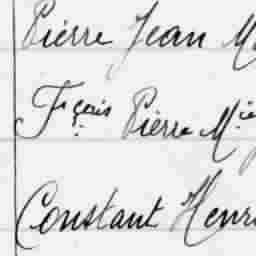 Pierre Jean M
Fçois Pierre Mie
Constant Henri